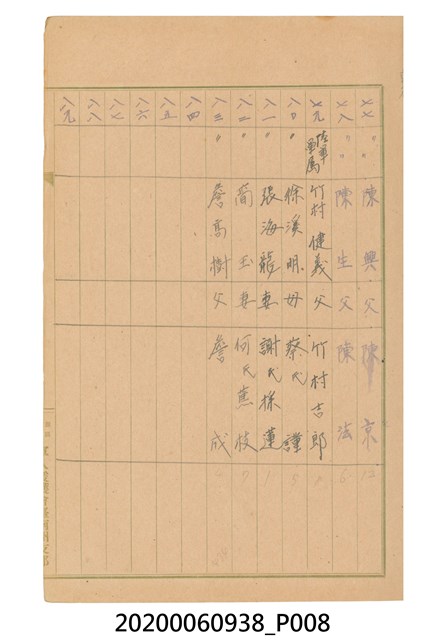 七七 〃 陳興 父 陳京 12
七八 〃 陳生 父 陳法 6
七九 竹村健義 父 竹村吉郎
八〇 〃 徐溪明 母 蔡氏謹
八一 〃 張海龍 妻 謝氏採蓮 1
八二 〃 簡玉 妻 何氏蕉枝 7
八三 〃 詹高樹 父 詹成
八四
八五
八六
八七
八八
八九
20200060938_P008